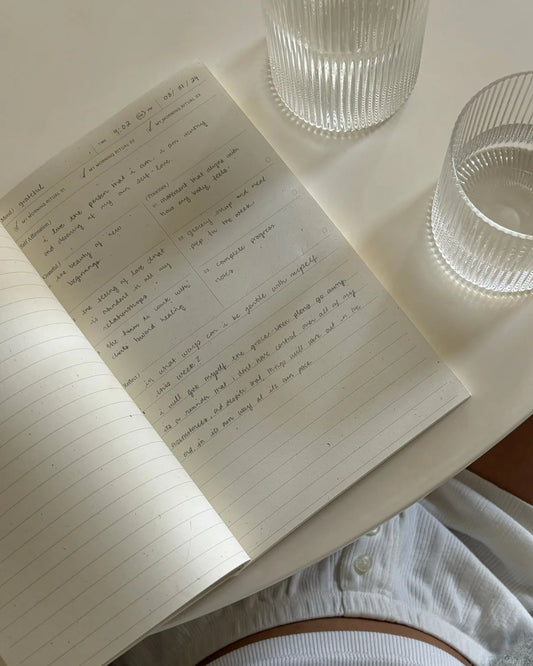 TIME 4:02 AM PM 03/31/24
MOOD: grateful
✓ MY MORNING RITUAL 01 ✓ MY MORNING RITUAL 02 ✓ MY MORNING RITUAL 03
i love the person that i am. i am worthy
and deserving of my own self-love
the beauty of new
beginnings
the feeling of love that
is abundant in all my
relationships
the to work with
clients toward healing
movement that aligns with
how my body feels
grocery shop and meal
prep for the week
complete progress
notes
in what ways can i be gentle with myself
this week?
i will give myself the grace when plans go away.
its a reminder that i dont have control over all of my
and things will work out in the
and in its own way at its own pace